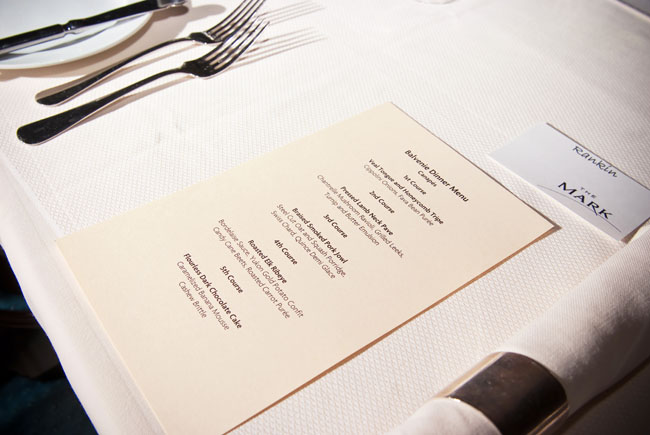 Balvenie Dinner Menu
Canapés
1st Course
Veal Tongue and Honeycomb Tripe
Cippolini Onions, Fava Bean Purée
2nd Course
Pressed Lamb Neck Pave
Chanterelle Mushroom Ravioli, Grilled Leeks,
Turnip and Butter Emulsion
3rd Course
Braised Smoked Pork Jowl
Steel Cut Oat and Squash Porridge,
Swiss Chard, Quince Demi Glace
4th Course
Roasted Elk Ribeye
Bordelaise Sauce, Yukon Gold Potato Confit
Candy Cane Beets, Roasted Carrot Purée
5th Course
Flourless Dark Chocolate Cake
Caramelized Banana Mousse
Cashew Brittle
Rankin
THE
MARK